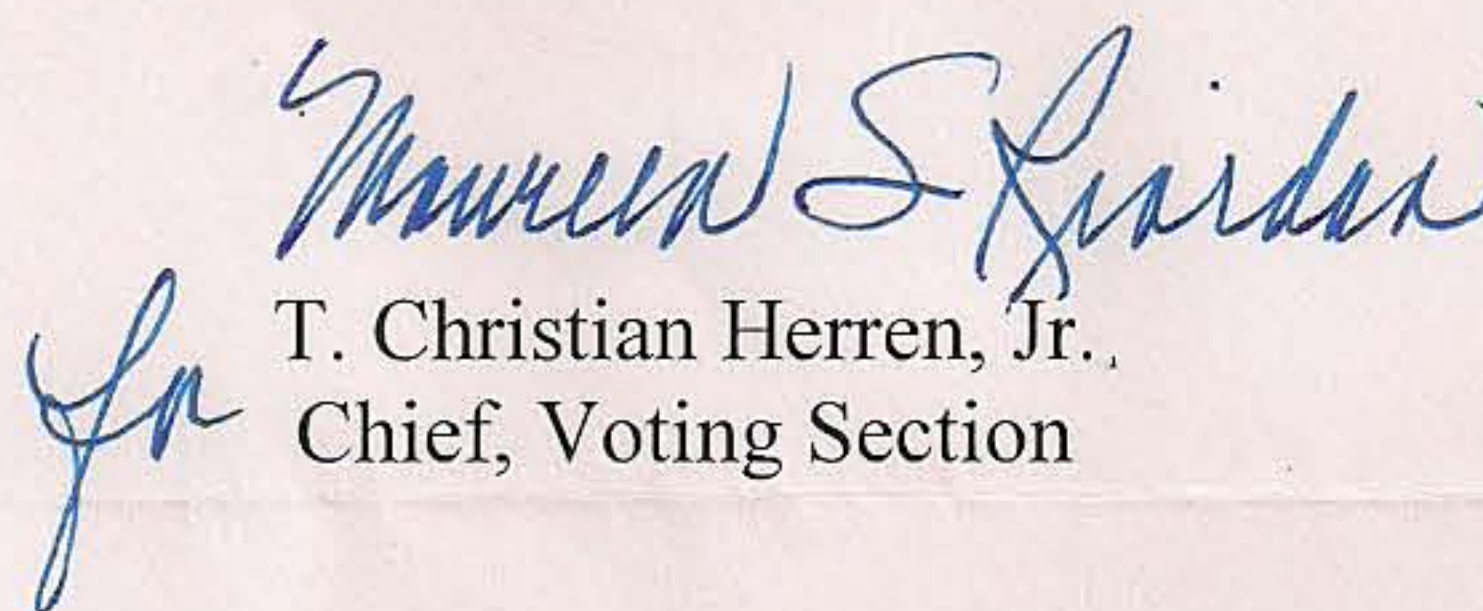 Maureen S Riordan
for T. Christian Herren, Jr.
Chief, Voting Section